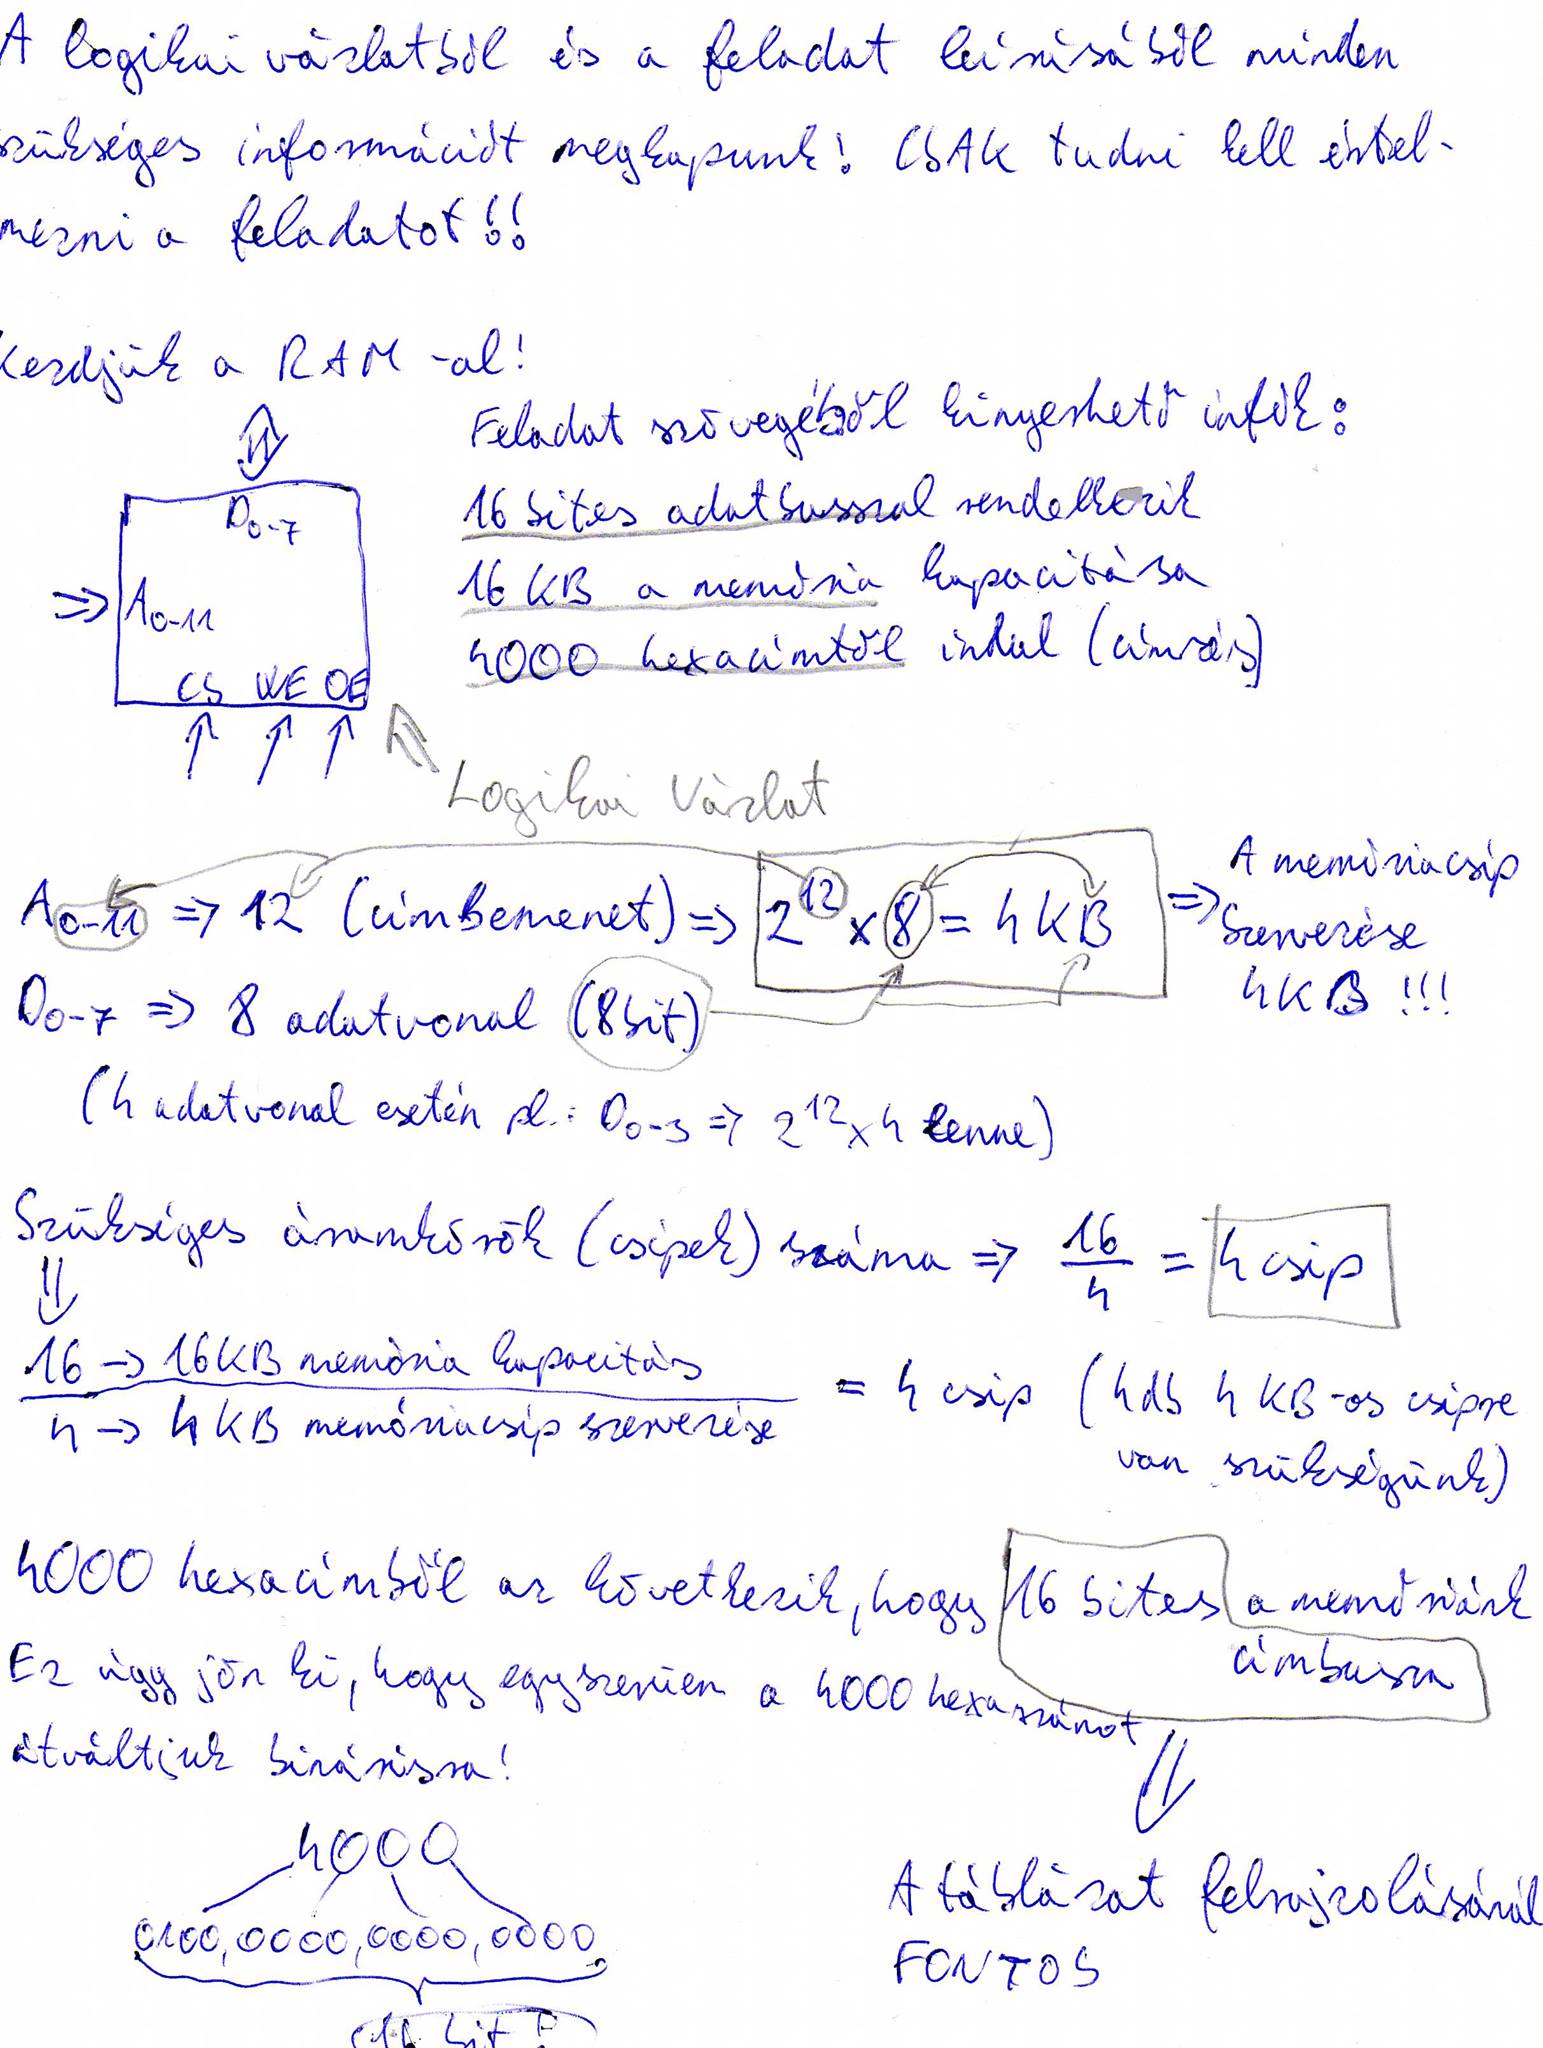 A logikai vázlatból és a feladat leírásából minden
szükséges információt megkapunk! CSAK tudni kell értel-
mezni a feladatot!!
Kezdjük a RAM -al!
Feladat szövegéből kinyerhető infók:
D0-7
16 bites adatbusszal rendelkezik
A0-11
16 KB a memória kapacitása
4000 hexacímtől indul (címzés)
CS WE OE
Logikai Vázlat
A0-11 ⇒ 12 (címbemenet) ⇒ 2^12 x 8 = 4 KB ⇒ A memóriacsip
szervezése
4KB !!!
D0-7 ⇒ 8 adatvonal (8bit)
(4 adatvonal esetén pl.: D0-3 ⇒ 2^12 x 4 lenne)
Szükséges áramkörök (csipek) száma ⇒ 16/4 = 4 csip
16 → 16KB memória kapacitás
4 → 4KB memóriacsip szervezése
= 4 csip (4db 4 KB-os csipre
van szükségünk)
4000 hexacímből az következik, hogy 16 bites a memóriánk
címbusza
Ez úgy jön ki, hogy egyszerűen a 4000 hexaszámot
átváltjuk binárisra!
4000
0100,0000,0000,0000
16 bit!
A táblázat felrajzolásánál
FONTOS